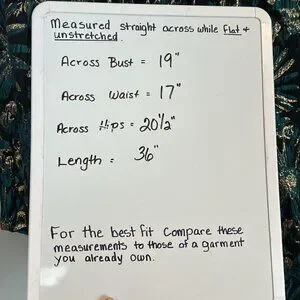 Measured straight across while flat +
unstretched.
Across Bust = 19"
Across Waist = 17"
Across Hips = 20 1/2"
Length = 36"
For the best fit Compare these
measurements to those of a garment
you already own.